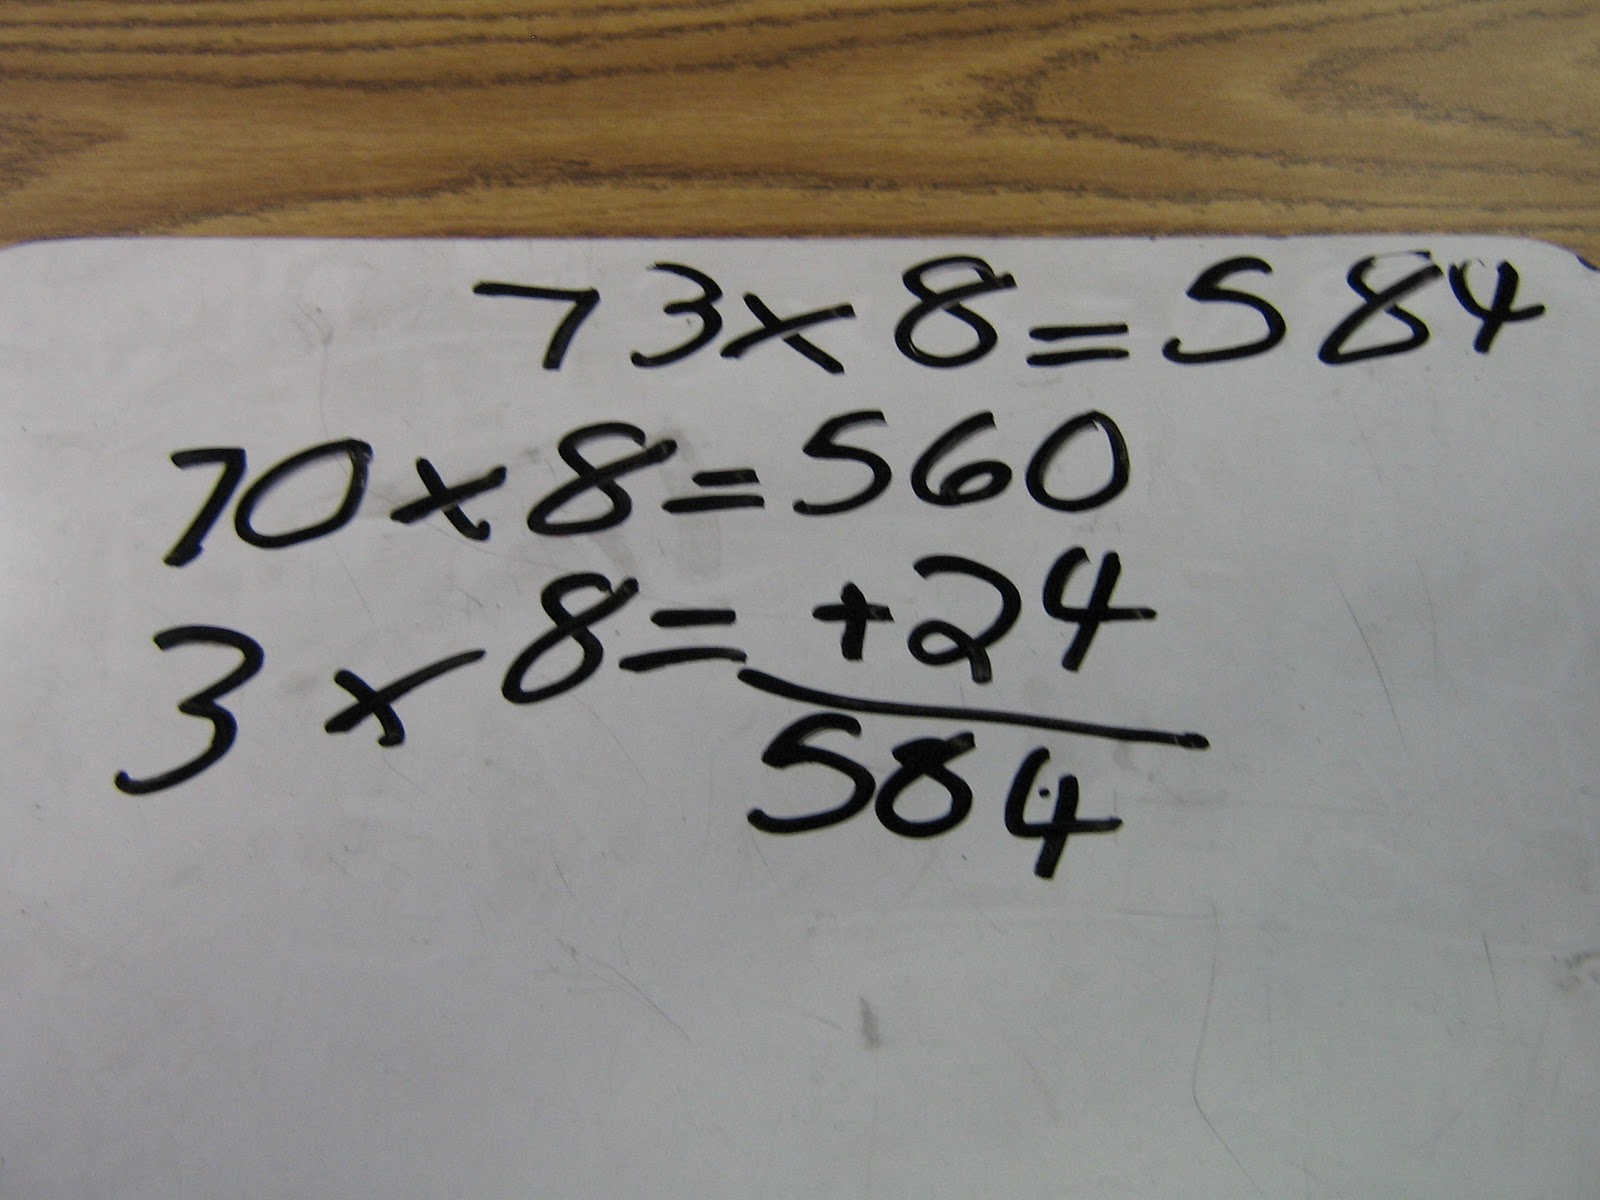 73x8=584
70x8=560
3x8=+24
584